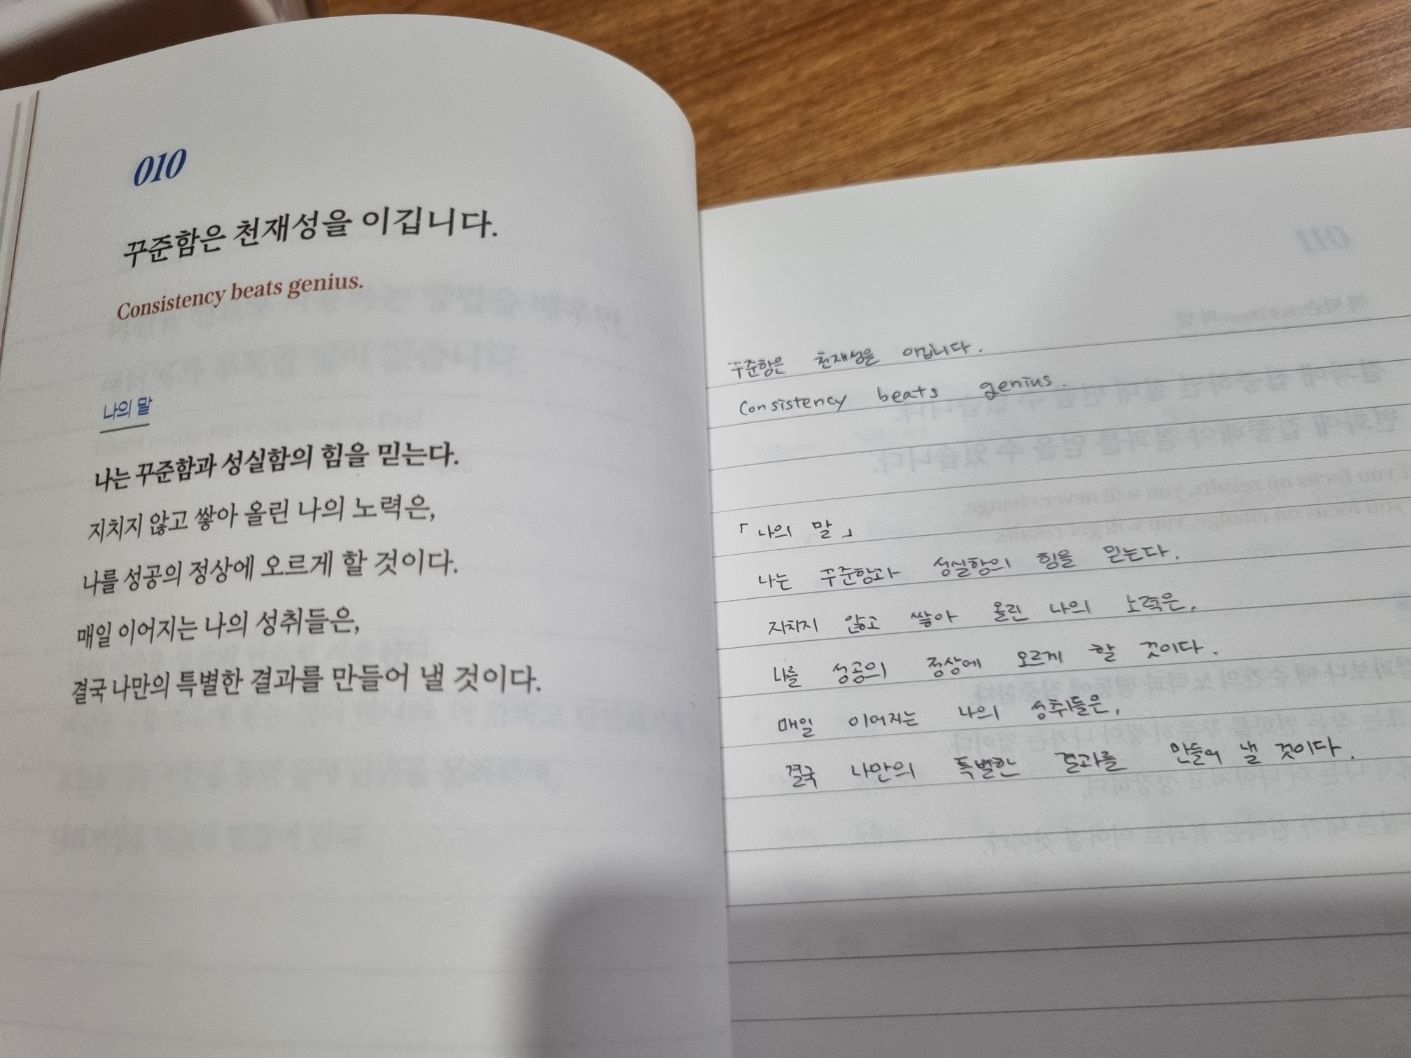 010
꾸준함은 천재성을 이깁니다.
Consistency beats genius.
나의 말
나는 꾸준함과 성실함의 힘을 믿는다.
지치지 않고 쌓아 올린 나의 노력은,
나를 성공의 정상에 오르게 할 것이다.
매일 이어지는 나의 성취들은,
결국 나만의 특별한 결과를 만들어 낼 것이다.
꾸준함은 천재성을 이깁니다.
Consistency beats genius.
「나의 말」
나는 꾸준함과 성실함의 힘을 믿는다.
지치지 않고 쌓아 올린 나의 노력은,
나를 성공의 정상에 오르게 할 것이다.
매일 이어지는 나의 성취들은,
결국 나만의 특별한 결과를 만들어 낼 것이다.